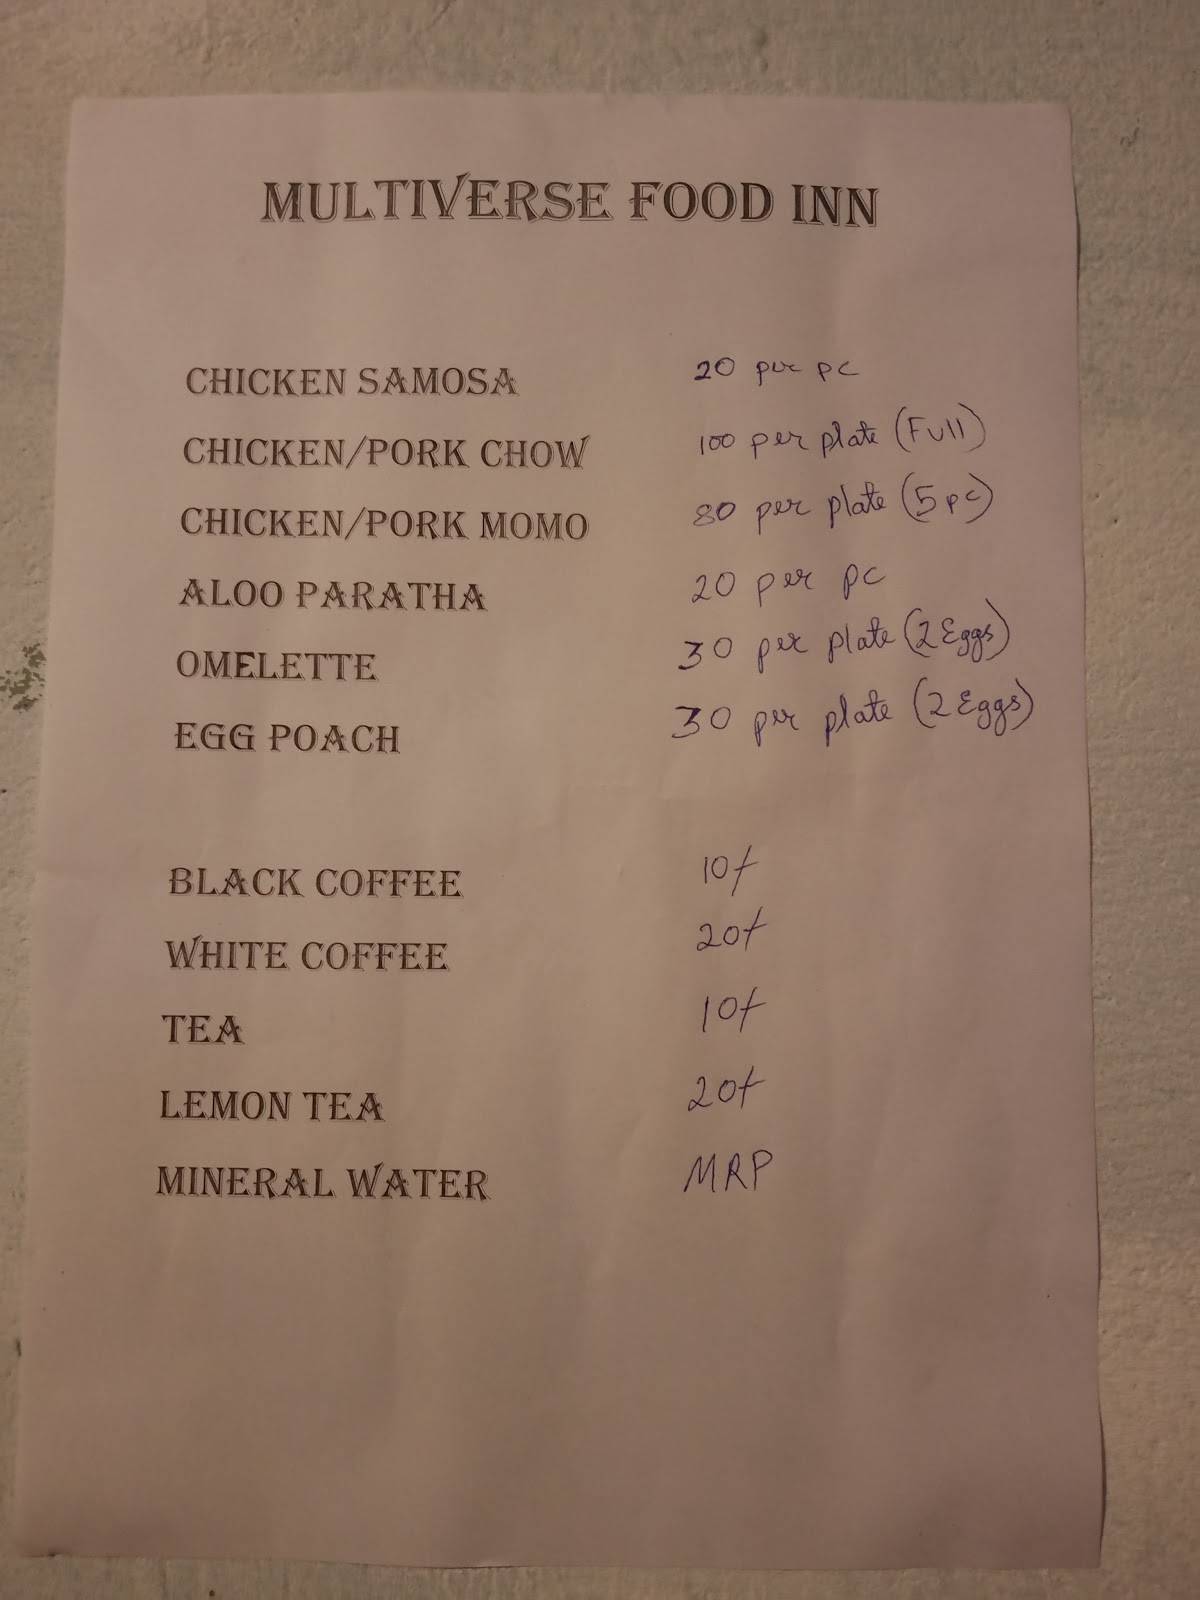 MULTIVERSE FOOD INN
CHICKEN SAMOSA 20 per pc
CHICKEN/PORK CHOW 100 per plate (Full)
CHICKEN/PORK MOMO 80 per plate (5 pc)
ALOO PARATHA 20 per pc
OMELETTE 30 per plate (2 Eggs)
EGG POACH 30 per plate (2 Eggs)
BLACK COFFEE 10/-
WHITE COFFEE 20/-
TEA 10/-
LEMON TEA 20/-
MINERAL WATER MRP